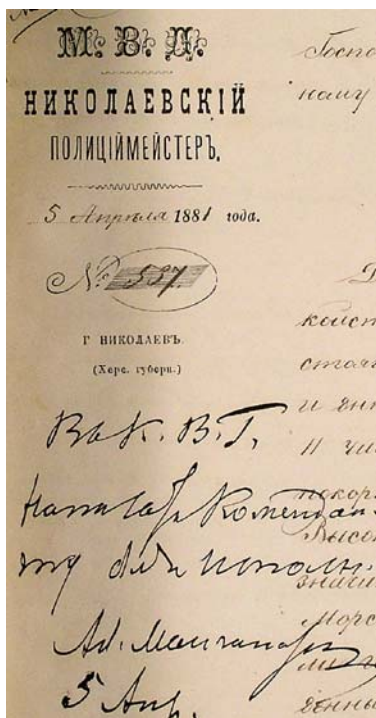 М. В. Д.
НИКОЛАЕВСКІЙ
ПОЛИЦІЙМЕЙСТЕРЪ.
5 Апрѣля 1881 года.
№ 557.
Г НИКОЛАЕВЪ.
(Херс. губерн.)
В. Г.
Написать Комендан-
ту для исполн.
Ад. Манганари
5 Апр.
Госпо
ному
стоя
и
покор
Высо
значи
Морс